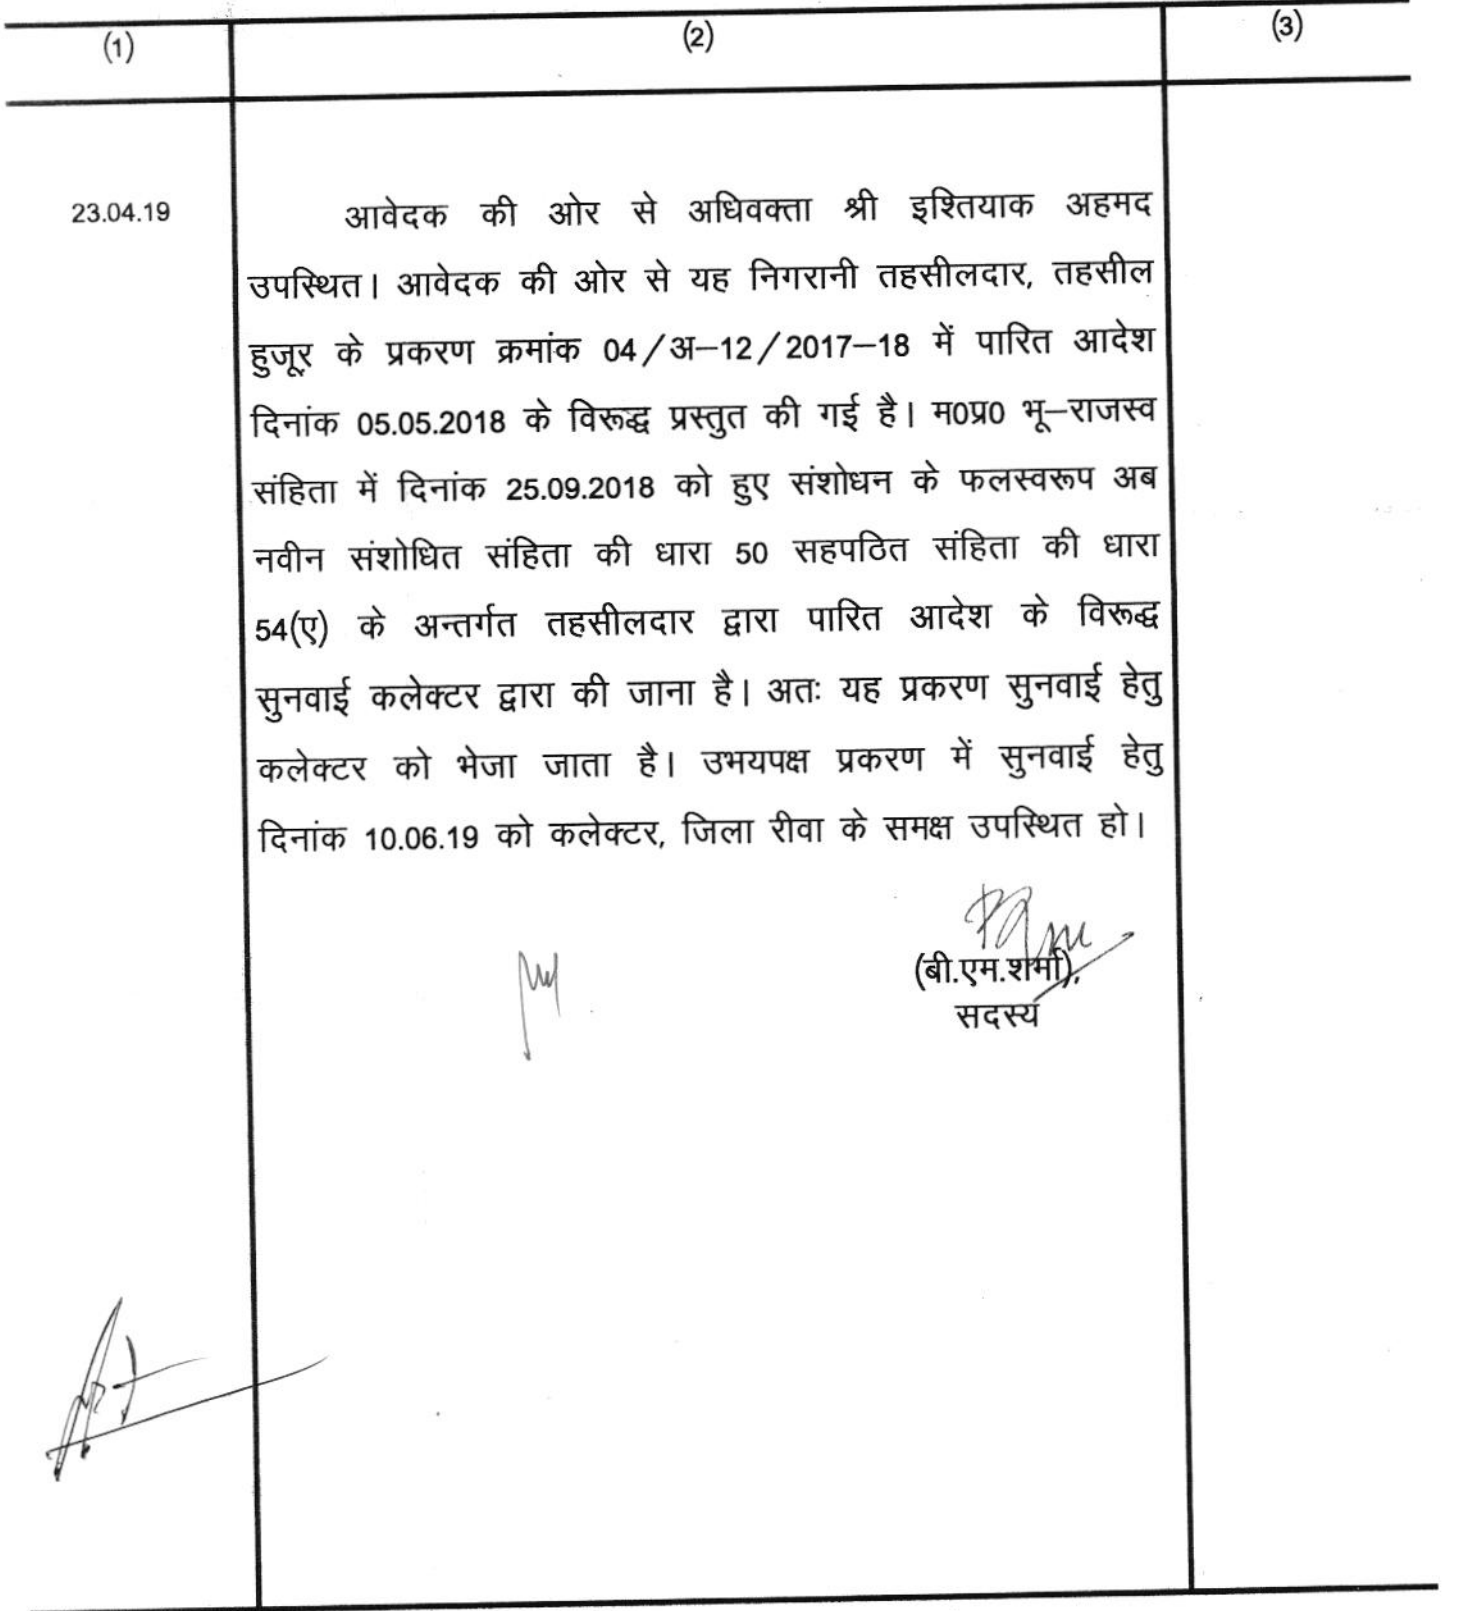 (1) (2) (3)
23.04.19 आवेदक की ओर से अधिवक्ता श्री इश्तियाक अहमद
उपस्थित। आवेदक की ओर से यह निगरानी तहसीलदार, तहसील
हुजूर के प्रकरण क्रमांक 04/अ–12/2017–18 में पारित आदेश
दिनांक 05.05.2018 के विरूद्ध प्रस्तुत की गई है। म0प्र0 भू–राजस्व
संहिता में दिनांक 25.09.2018 को हुए संशोधन के फलस्वरूप अब
नवीन संशोधित संहिता की धारा 50 सहपठित संहिता की धारा
54(ए) के अन्तर्गत तहसीलदार द्वारा पारित आदेश के विरूद्ध
सुनवाई कलेक्टर द्वारा की जाना है। अतः यह प्रकरण सुनवाई हेतु
कलेक्टर को भेजा जाता है। उभयपक्ष प्रकरण में सुनवाई हेतु
दिनांक 10.06.19 को कलेक्टर, जिला रीवा के समक्ष उपस्थित हो।
(बी.एम.शर्मा)
सदस्य